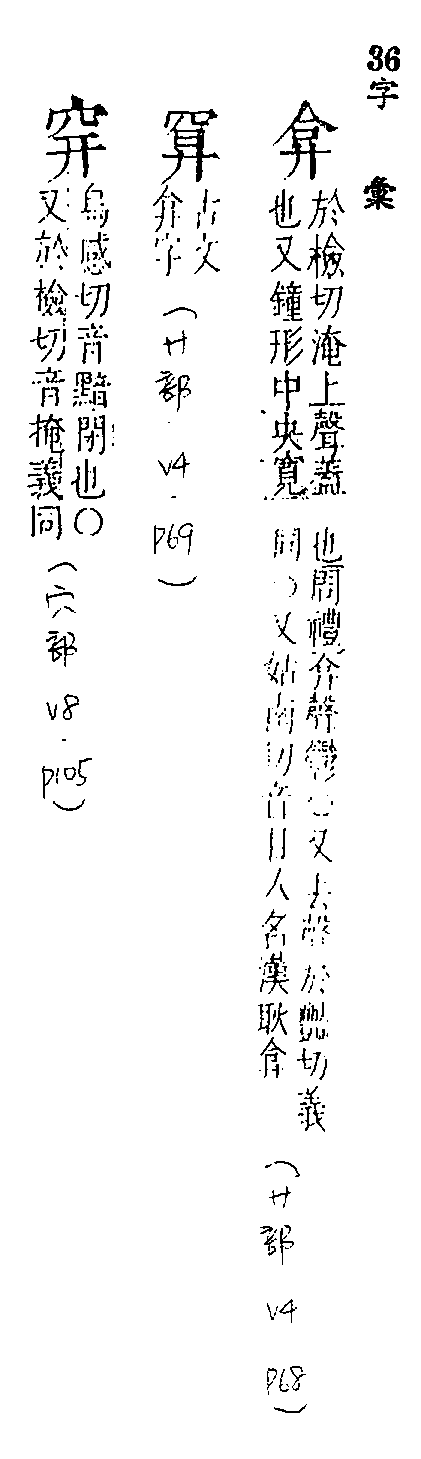 36字彙
弇
於檢切淹上聲蓋
也又鐘形中央寬
也周禮弇聲鬱〇又去聲於豔切義
同〇又姑南切音甘人名漢耿弇
(廾部 v4 p68)
古文
弇字
(廾部 · v4 · p69)
烏感切音黯閉也〇
又於檢切音掩義同
(穴部 v8 · p105)